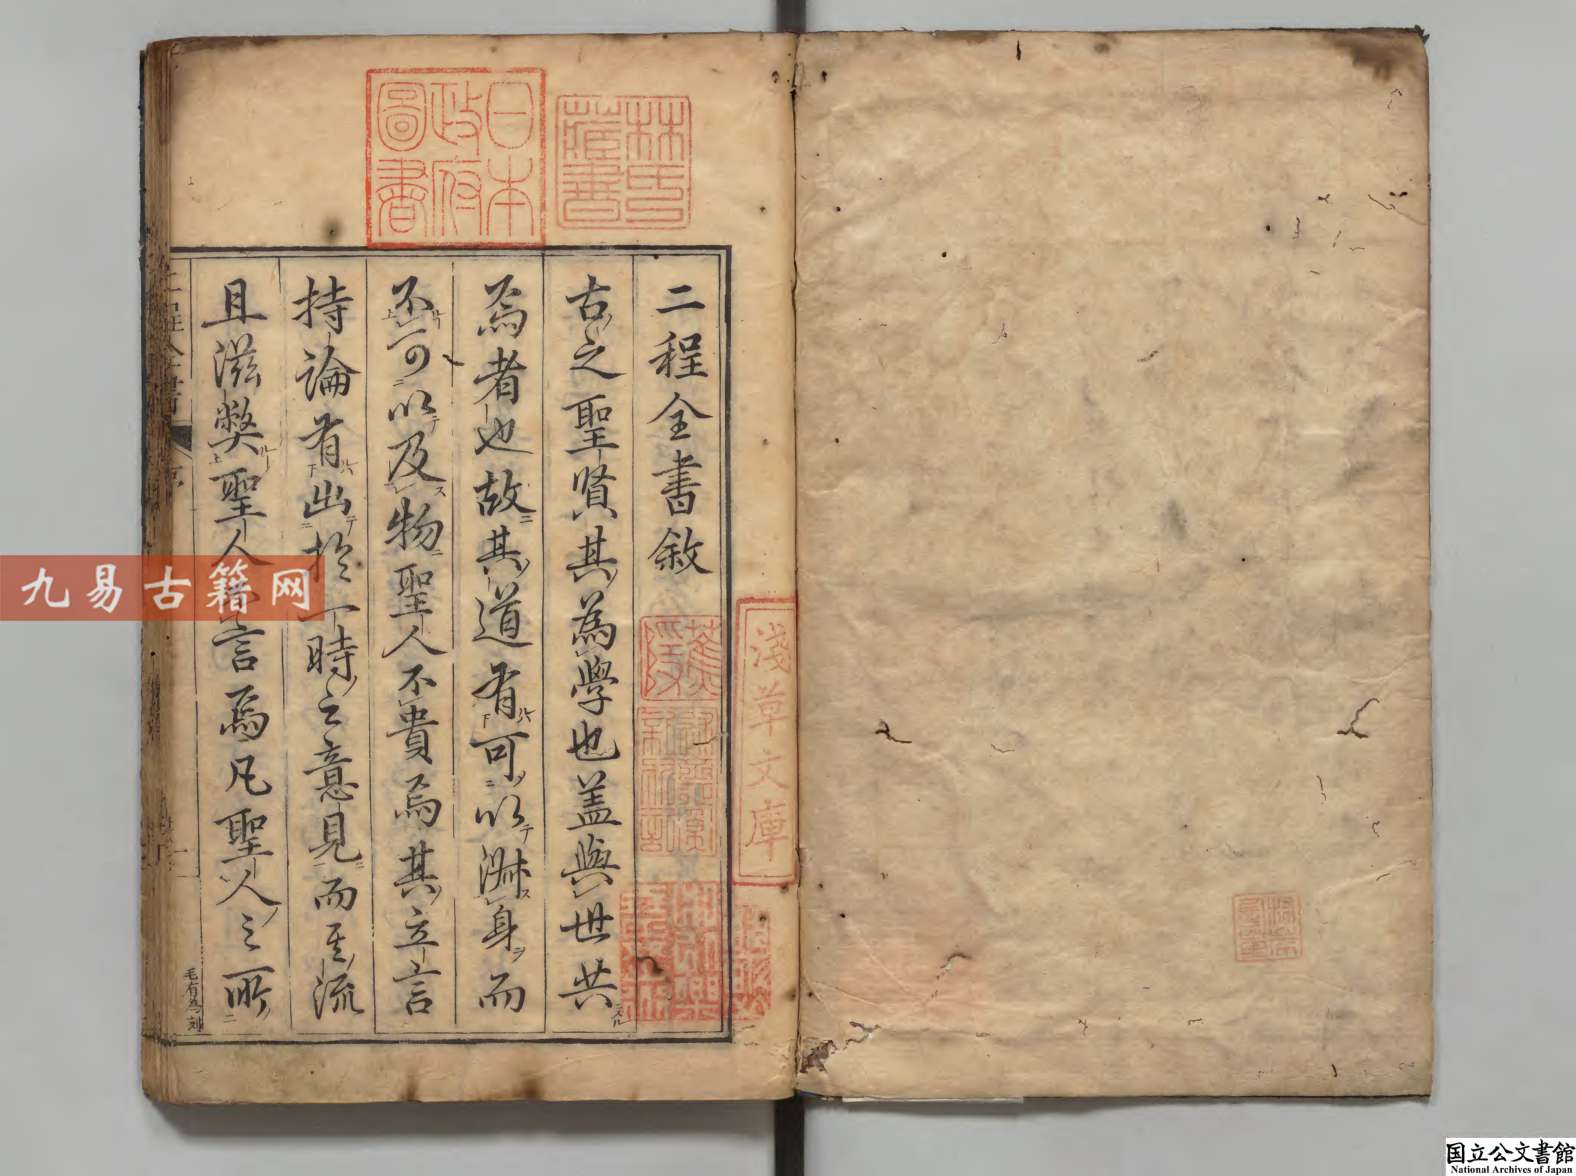 二程全書敘
古之聖賢其為學也盖與世共
焉者也故其道有可以淋身而
不可以及物聖人不貴焉其立言
持論有出於一時之意見而其流
且滋獘聖人言焉凡聖人之所
毛有為刻
日本政府圖書
林氏藏書
淺草文庫
九易古籍网
国立公文書館
National Archives of Japan